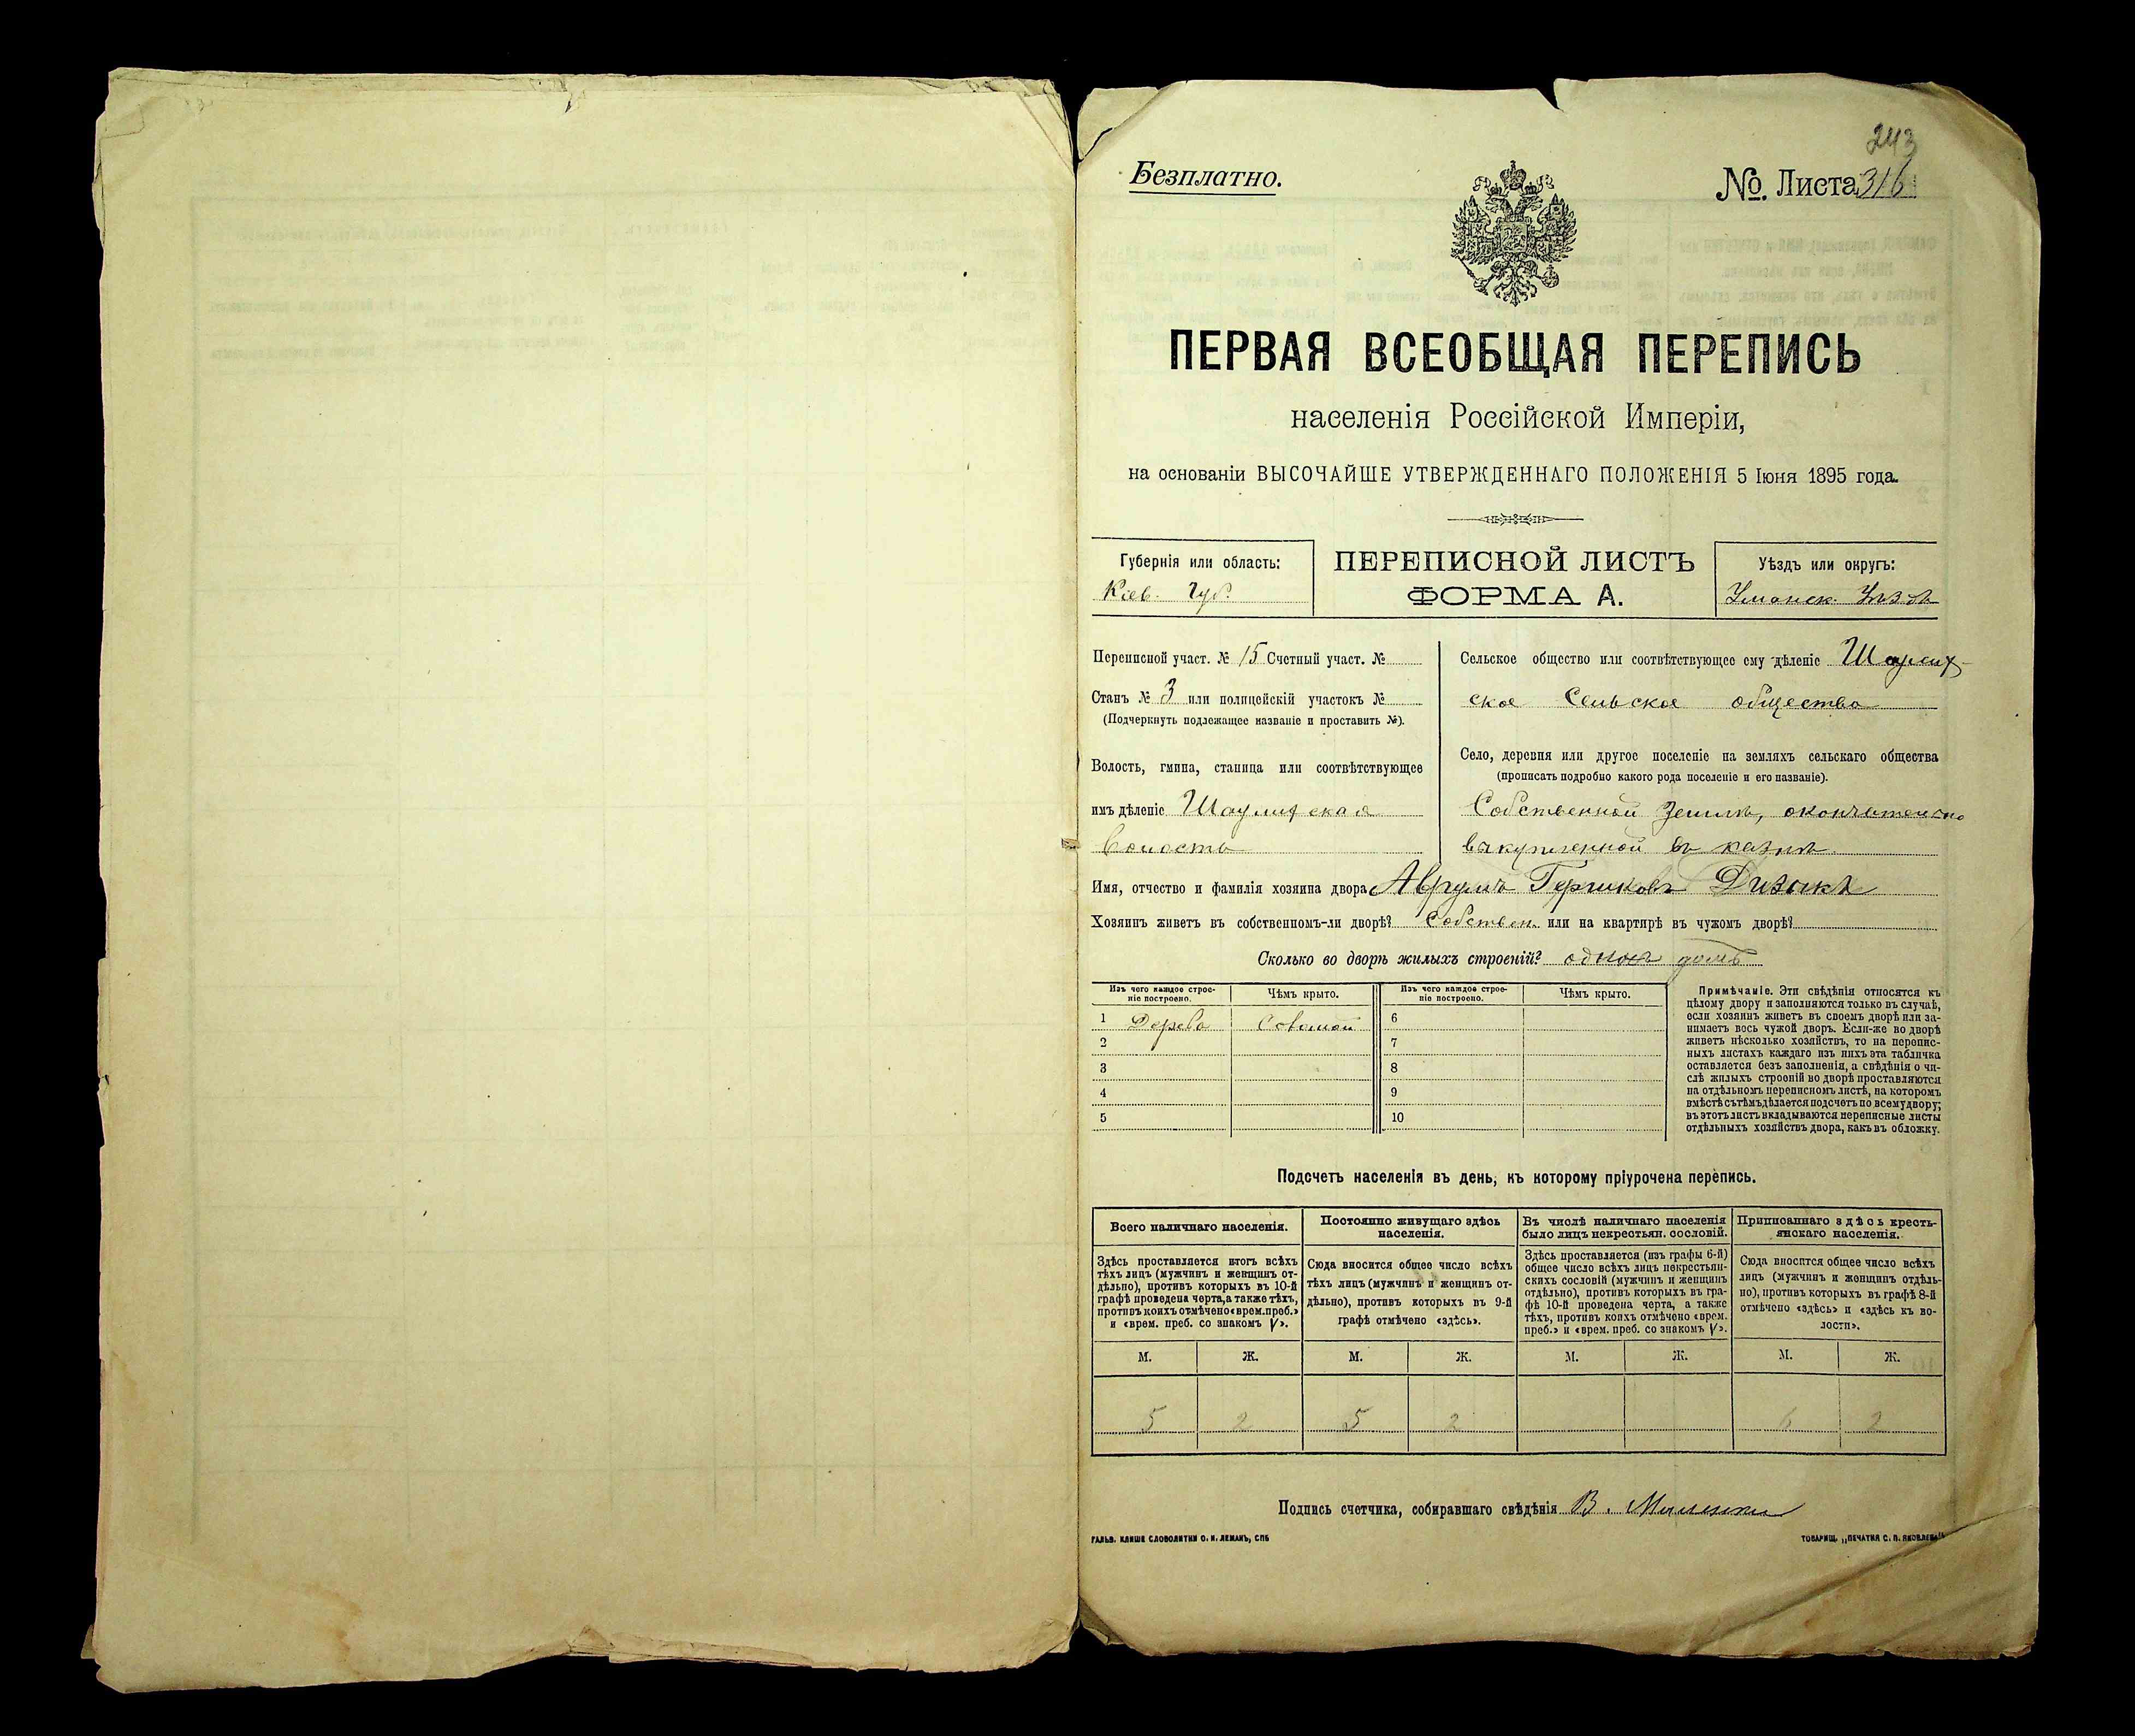 243
Безплатно.
№. Листа 316
ПЕРВАЯ ВСЕОБЩАЯ ПЕРЕПИСЬ
населенія Россійской Имперіи,
на основаніи ВЫСОЧАЙШЕ УТВЕРЖДЕННАГО ПОЛОЖЕНІЯ 5 Іюня 1895 года.
Губернія или область:
Кіев. Губ.
ПЕРЕПИСНОЙ ЛИСТЪ
ФОРМА А.
Уѣздъ или округъ:
Уманск. Уѣздъ
Переписной участ. № 15 Счетный участ. №
Станъ № 3 или полицейскій участокъ №
(Подчеркнуть подлежащее названіе и проставить №).
Волость, гмина, станица или соотвѣтствующее
имъ дѣленіе
волость
Сельское общество или соотвѣтствующее ему дѣленіе
ское Сельское общество
Село, деревня или другое поселеніе на земляхъ сельскаго общества
(прописать подробно какого рода поселеніе и его названіе).
Собственной Землѣ, окончательно
выкупленной въ казнѣ
Имя, отчество и фамилія хозяина двора Аврумъ Гершковъ Дизикъ
Хозяинъ живетъ въ собственномъ-ли дворѣ? Собствен. или на квартирѣ въ чужомъ дворѣ?
Сколько во дворѣ жилыхъ строеній? одинъ домъ
Изъ чего каждое строе-
ніе построено.
Чѣмъ крыто.
Изъ чего каждое строе-
ніе построено.
Чѣмъ крыто.
1 Дерева Соломой
2
3
4
5
6
7
8
9
10
Примѣчаніе. Эти свѣдѣнія относятся къ
цѣлому двору и заполняются только въ случаѣ,
если хозяинъ живетъ въ своемъ дворѣ или за-
нимаетъ весь чужой дворъ. Если-же во дворѣ
живетъ нѣсколько хозяйствъ, то на перепис-
ныхъ листахъ каждаго изъ нихъ эта табличка
оставляется безъ заполненія, а свѣдѣнія о чи-
слѣ жилыхъ строеній во дворѣ проставляются
на отдѣльномъ переписномъ листѣ, на которомъ
вмѣстѣ съ тѣмъ дѣлается подсчетъ по всему двору;
въ этотъ листъ вкладываются переписные листы
отдѣльныхъ хозяйствъ двора, какъ въ обложку.
Подсчетъ населенія въ день, къ которому пріурочена перепись.
Всего наличнаго населенія.
Здѣсь проставляется итогъ всѣхъ
тѣхъ лицъ (мужчинъ и женщинъ от-
дѣльно), противъ которыхъ въ 10-й
графѣ проведена черта, а также тѣхъ,
противъ коихъ отмѣчено «врем. преб.»
и «врем. преб. со знакомъ V».
Постоянно живущаго здѣсь
населенія.
Сюда вносится общее число всѣхъ
тѣхъ лицъ (мужчинъ и женщинъ от-
дѣльно), противъ которыхъ въ 9-й
графѣ отмѣчено «здѣсь».
Въ числѣ наличнаго населенія
было лицъ некрестьян. сословій.
Здѣсь проставляется (изъ графы 6-й)
общее число всѣхъ лицъ некрестьян-
скихъ сословій (мужчинъ и женщинъ
отдѣльно), противъ которыхъ въ гра-
фѣ 10-й проведена черта, а также
тѣхъ, противъ коихъ отмѣчено «врем.
преб.» и «врем. преб. со знакомъ V».
Приписаннаго здѣсь кресть-
янскаго населенія.
Сюда вносится общее число всѣхъ
лицъ (мужчинъ и женщинъ отдѣль-
но), противъ которыхъ въ графѣ 8-й
отмѣчено «здѣсь» и «здѣсь къ во-
лости».
М. Ж. М. Ж. М. Ж. М. Ж.
5 2 5 2 6 2
Подпись счетчика, собиравшаго свѣдѣнія В.
ГАЛЬВ. КЛИШЕ СЛОВОЛИТНИ О. И. ЛЕМАНЪ, СПБ
ТОВАРИЩ. „ПЕЧАТНЯ С. П. ЯКОВЛЕВА"